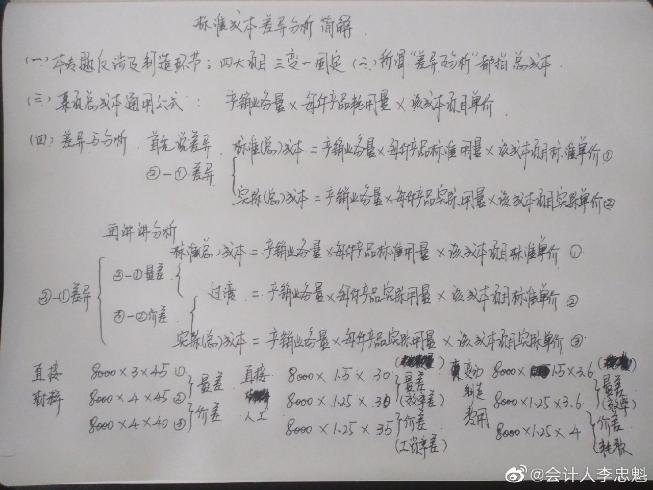 标准成本差异分析 简解
(一)本专题仅涉及制造环节:四大项目 三变一固定 (二)所谓"差异与分析"都指总成本
(三)某项总成本通用公式: 产销业务量×每件产品耗用量×该成本项目单价
(四)差异与分析 首先说差异 标准(总)成本=产销业务量×每件产品标准用量×该成本项目标准单价①
②-①差异
实际(总)成本=产销业务量×每件产品实际用量×该成本项目实际单价②
再讲讲分析
标准(总)成本=产销业务量×每件产品标准用量×该成本项目标准单价 ①
③-①差异 ②-①量差 过渡 =产销业务量×每件产品实际用量×该成本项目标准单价 ②
③-②价差
实际(总)成本=产销业务量×每件产品实际用量×该成本项目实际单价③
直接材料 8000×3×45① 直接人工 8000×1.5×30 变动制造费用 8000×1.5×3.6
8000×4×45② 量差 8000×1.25×30 量差(效率差) 8000×1.25×3.6 量差(效率)
8000×4×40③ 价差 8000×1.25×35 价差(工资率差) 8000×1.25×4 价差(耗费)
@会计人李忠魁